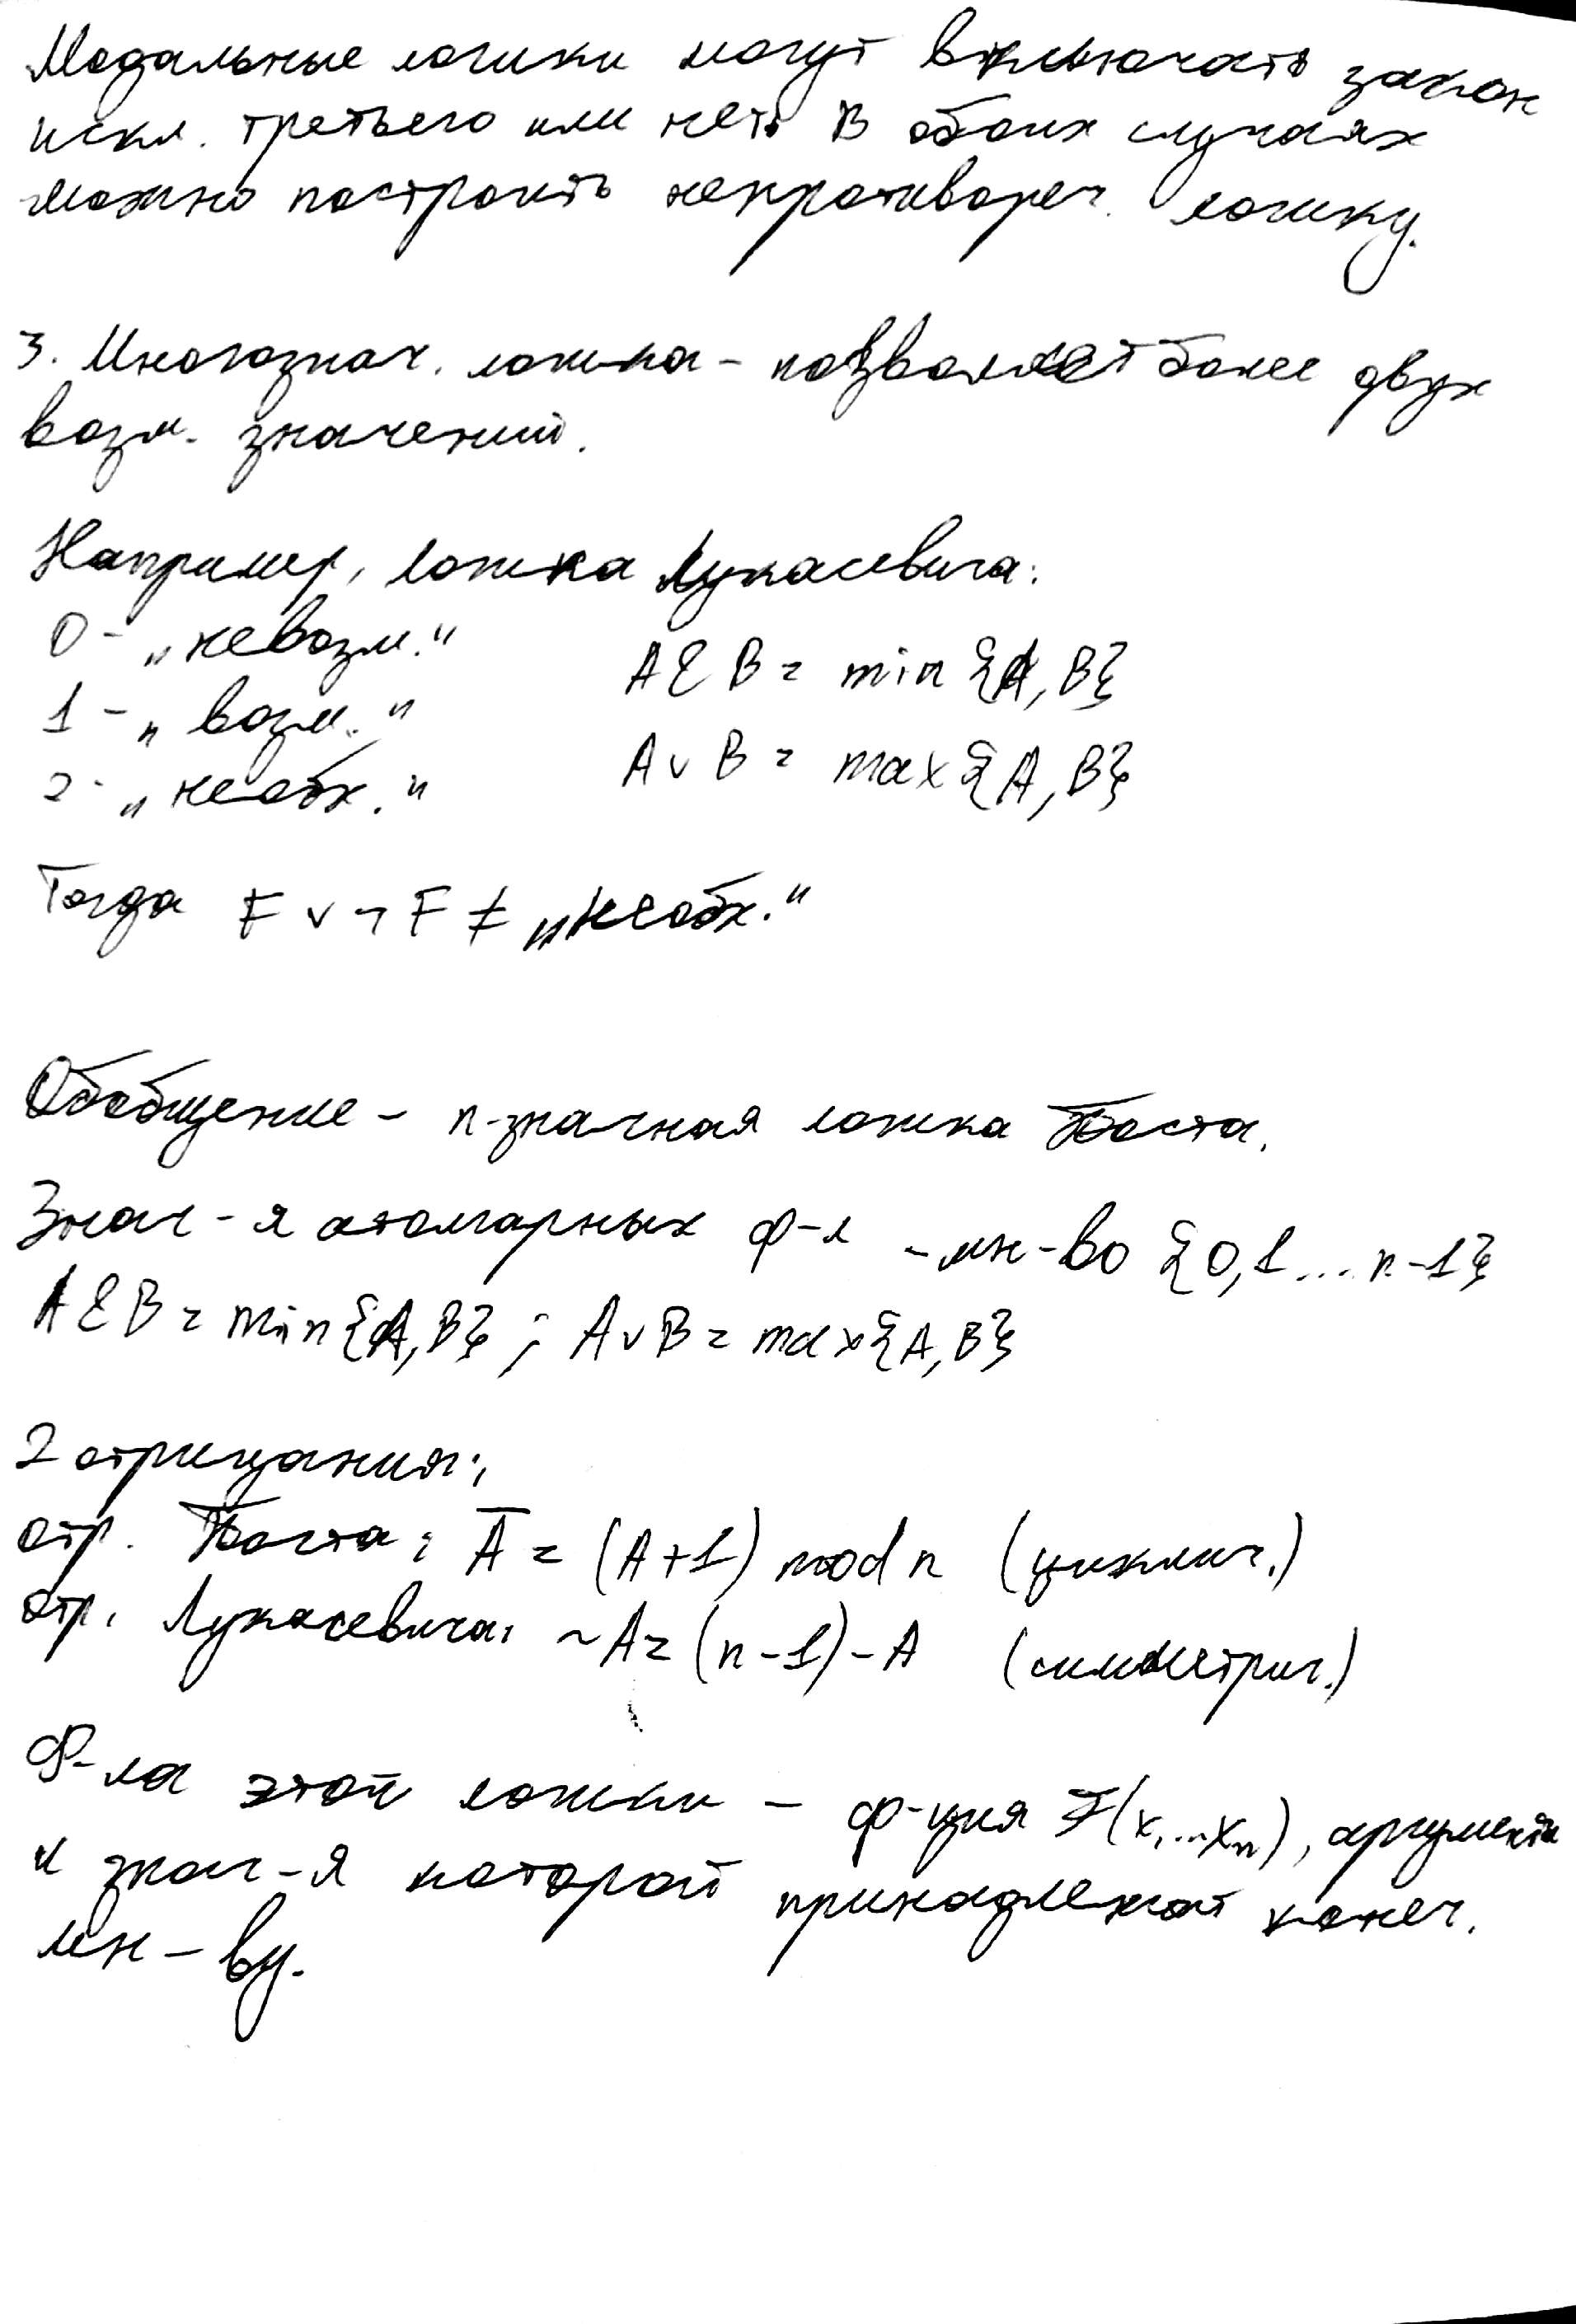 Модальные логики могут включать закон
искл. третьего или нет. В обоих случаях
можно построить непротивореч. логику.
3. Многознач. логика – позволяет более двух
возм. значений.
Например, логика Лукасевича:
0 – „невозм.“
1 – „возм.“
2 – „необх.“
A & B = min {A, B}
A ∨ B = max {A, B}
Тогда F ∨ ¬ F ≠ „необх.“
Обобщение – n-значная логика Поста.
Знач-я атомарных ф-л – мн-во {0,1 ... n-1}
A & B = min{A, B} ; A ∨ B = max{A, B}
2 отрицания:
отр. Поста: Ā = (A+1) mod n (циклич.)
отр. Лукасевича: ~A = (n-1) - A (симметрич.)
Ф-ла этой логики – ф-ция F(x₁...xₙ), аргументы
и знач-я которой принадлежат конеч.
мн-ву.